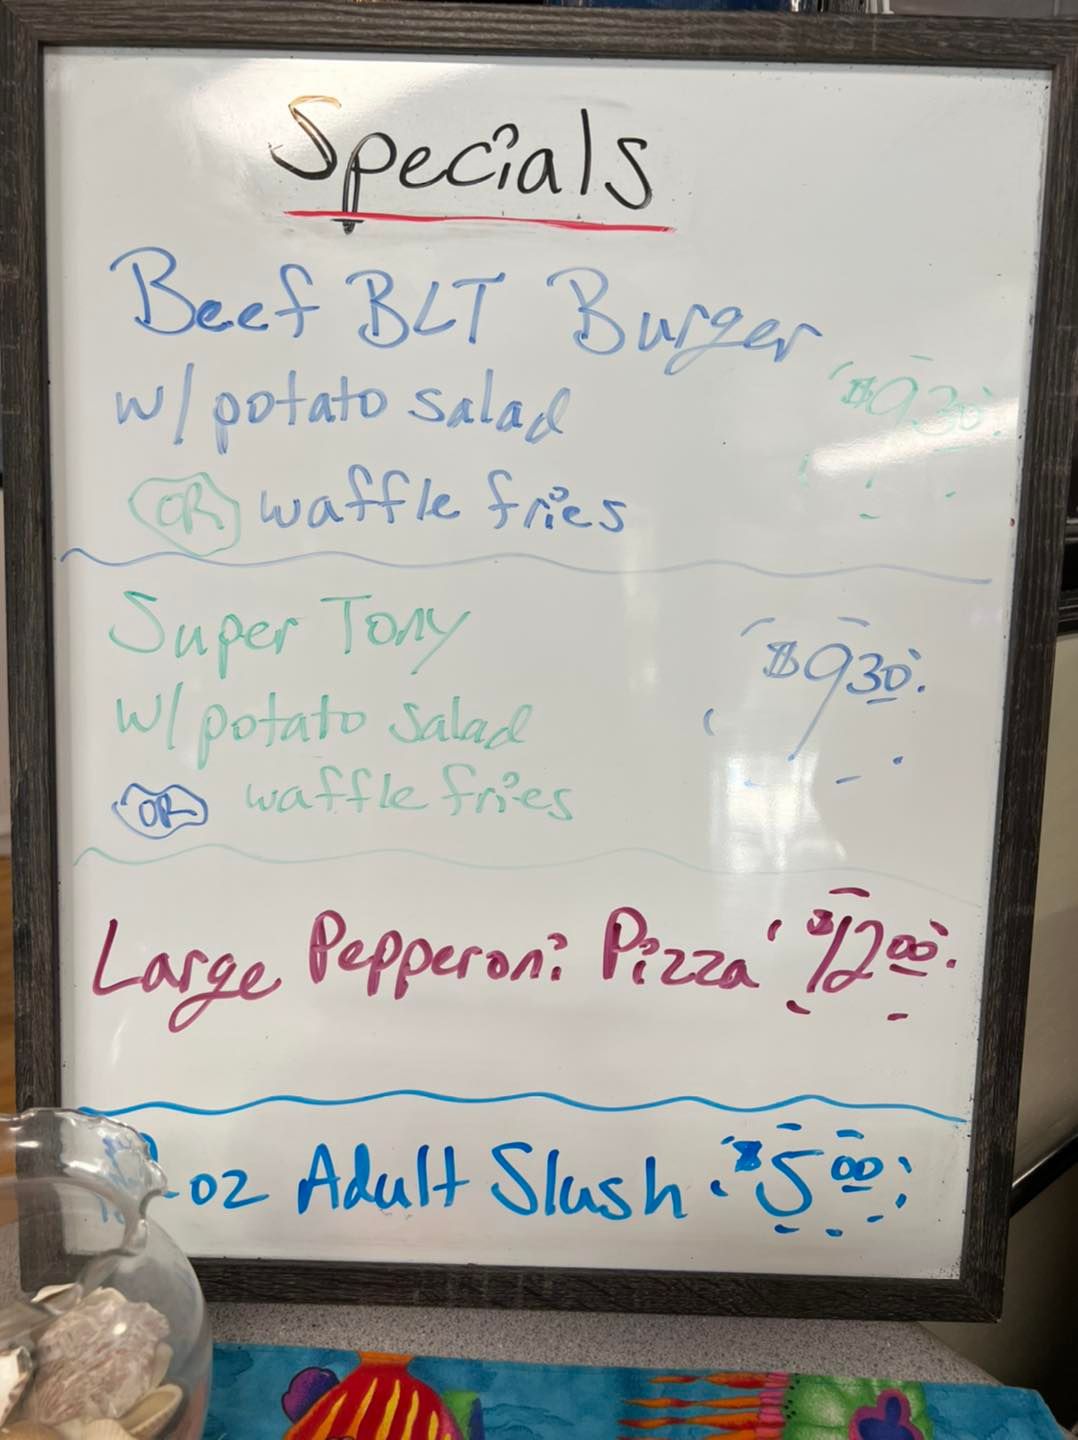 Specials
Beef BLT Burger
w/ potato salad $9.30
OR waffle fries
Super Tony
$9.30
w/ potato salad
OR waffle fries
Large Pepperoni Pizza $12.00
oz Adult Slush $5.00